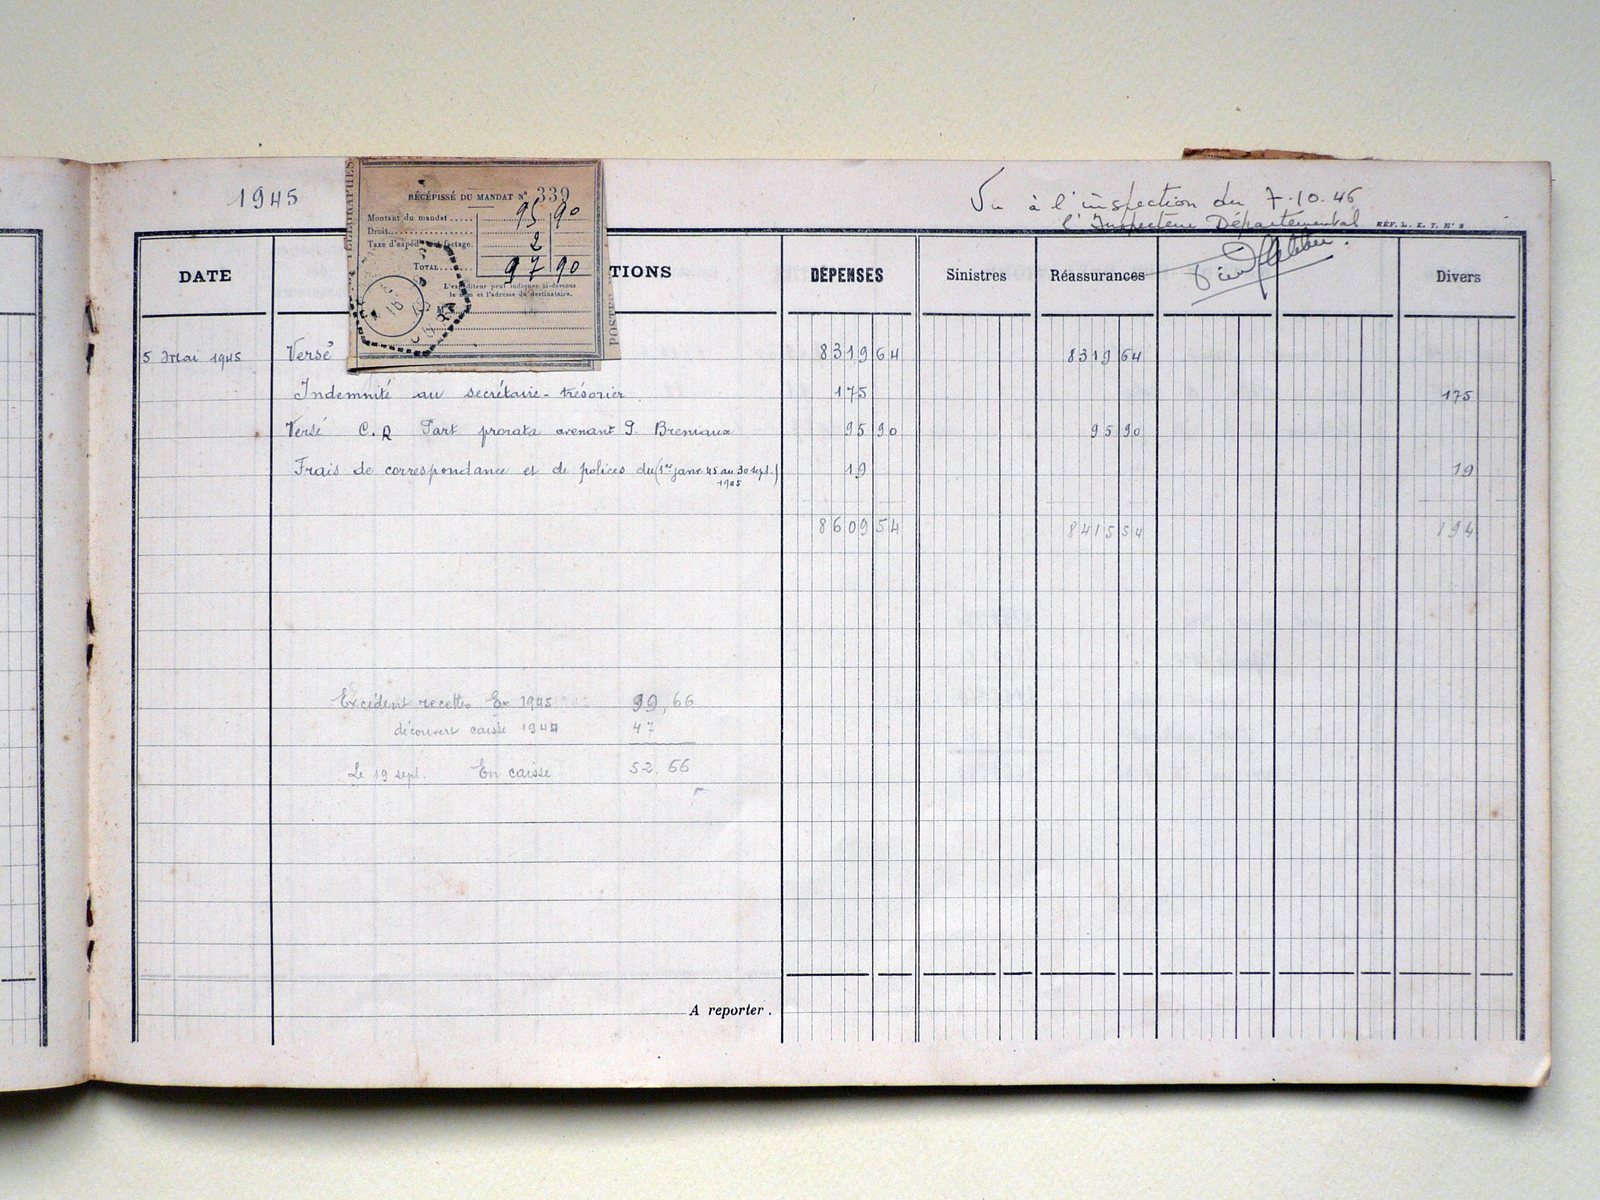 1945
Vu à l'inspection du 7.10.46
l'Inspecteur Départemental
RÉF. L. E. T. N° 8
TÉLÉGRAPHES
RÉCÉPISSÉ DU MANDAT N° 339
Montant du mandat..... 95 90
Droit............... 2
Taxe d'expéd et factage.
TOTAL...... 97 90
L'expéditeur peut indiquer ci-dessous
le nom et l'adresse du destinataire.
M
POSTES
DATE TIONS DÉPENSES Sinistres Réassurances Divers
5 Mai 1945 Versé 8319 64 8319 64
Indemnité au secrétaire-trésorier 175 175
Versé C.R Part prorata avenant P. 95 90 95 90
Frais de correspondance et de polices du (1er janv. 45 au 30 sept.) 19 19
1945
8609 54 8415 54 194
Excédent recettes En 1945 99,66
découvert caisse 1944 47
Le 19 sept. En caisse 52.66
A reporter.